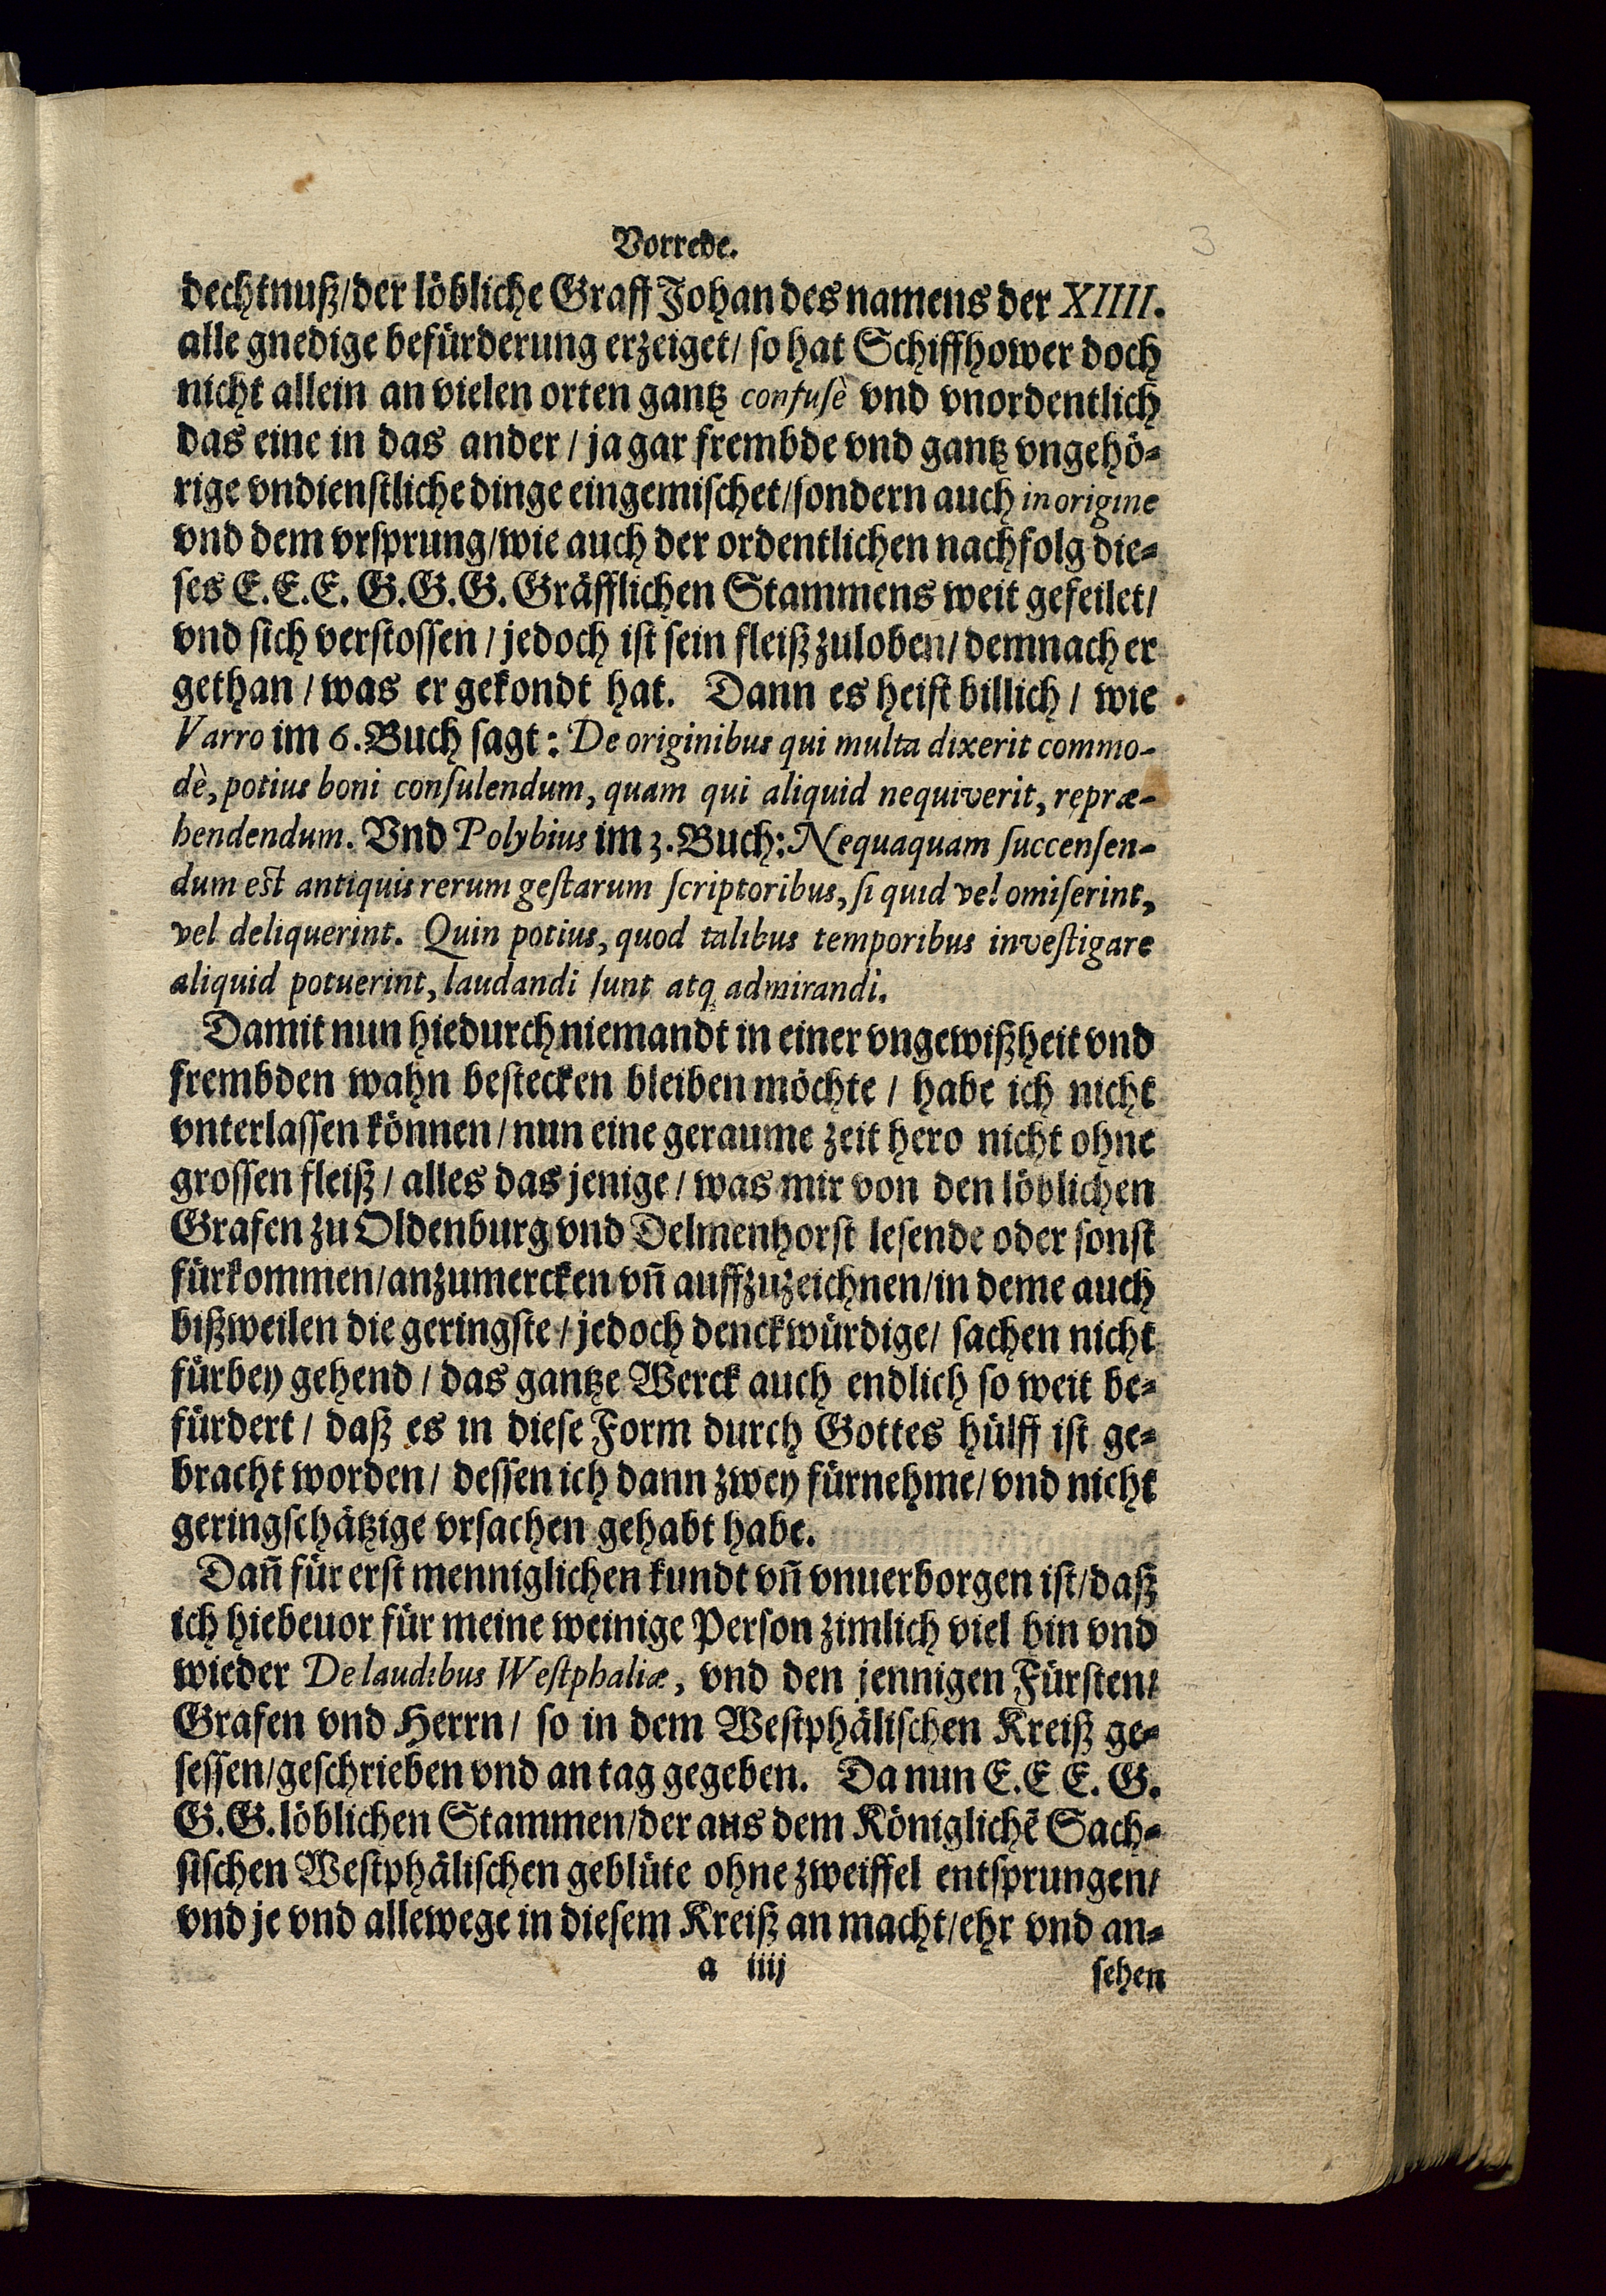 Vorrede.
3
dechtnuß/der löbliche Graff Johan des namens der XIIII.
alle gnedige befürderung erzeiget/ so hat Schiffhower doch
nicht allein an vielen orten gantz confusè vnd vnordentlich
das eine in das ander / ja gar frembde vnd gantz vngehö-
rige vndienstliche dinge eingemischet/sondern auch in origine
vnd dem vrsprung/wie auch der ordentlichen nachfolg die-
ses E.E.E. G.G.G. Gräfflichen Stammens weit gefeilet/
vnd sich verstossen / jedoch ist sein fleiß zuloben/ demnach er
gethan / was er gekondt hat. Dann es heist billich / wie
Varro im 6. Buch sagt: De originibus qui multa dixerit commo-
dè, potius boni consulendum, quam qui aliquid nequiverit, repræ-
hendendum. Vnd Polybius im 3. Buch: Nequaquam succensen-
dum est antiquis rerum gestarum scriptoribus, si quid vel omiserint,
vel deliquerint. Quin potius, quod talibus temporibus investigare
aliquid potuerint, laudandi sunt atq admirandi.
Damit nun hiedurch niemandt in einer vngewißheit vnd
frembden wahn bestecken bleiben möchte / habe ich nicht
vnterlassen können/ nun eine geraume zeit hero nicht ohne
grossen fleiß / alles das jenige / was mir von den löblichen
Grafen zu Oldenburg vnd Delmenhorst lesende oder sonst
fürkommen/anzumercken vñ auffzuzeichnen/in deme auch
bißweilen die geringste / jedoch denckwürdige/ sachen nicht
fürbey gehend / das gantze Werck auch endlich so weit be-
fürdert / daß es in diese Form durch Gottes hülff ist ge-
bracht worden/ dessen ich dann zwey fürnehme/ vnd nicht
geringschätzige vrsachen gehabt habe.
Dañ für erst menniglichen kundt vñ vnuerborgen ist/daß
ich hiebeuor für meine weinige Person zimlich viel hin vnd
wieder De laudibus Westphaliæ, vnd den jennigen Fürsten/
Grafen vnd Herrn/ so in dem Westphälischen Kreiß ge-
sessen/geschrieben vnd an tag gegeben. Da nun E.E E. G.
G.G. löblichen Stammen/der aus dem Königlichẽ Sach-
sischen Westphälischen geblüte ohne zweiffel entsprungen/
vnd je vnd allewege in diesem Kreiß an macht/ehr vnd an-
a iiij
sehen